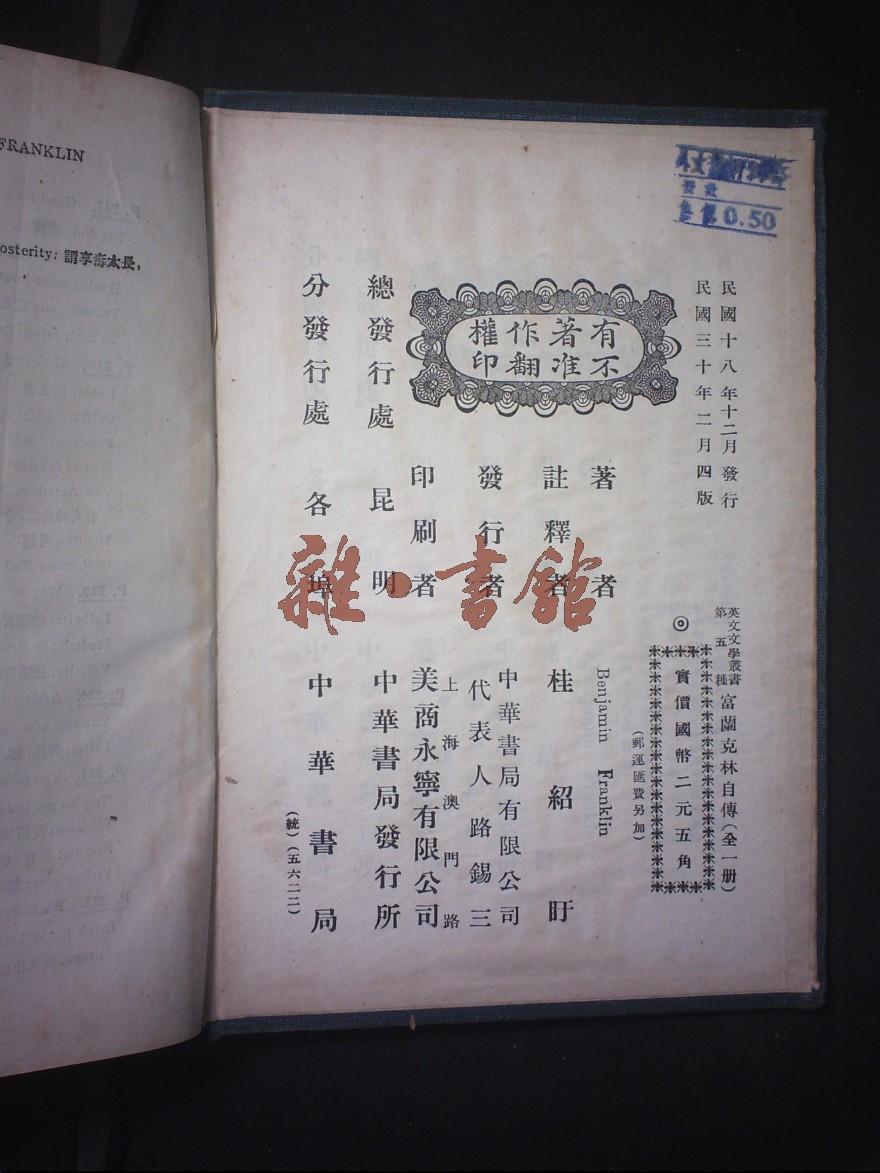 FRANKLIN
osterity: 謂享壽太長,
售價 0.50
民國十八年十二月發行
民國三十年二月四版
有著作權
不准翻印
英文文學叢書
第五種
富蘭克林自傳(全一册)
◎
實價國幣二元五角
(郵運匯費另加)
著者 Benjamin Franklin
註釋者 桂紹盱
發行者 中華書局有限公司
代表人路錫三
上海澳門路
印刷者 美商永寧有限公司
總發行處 昆明 中華書局發行所
分發行處 各埠 中華書局
(統)(五六二二)
雜·書館